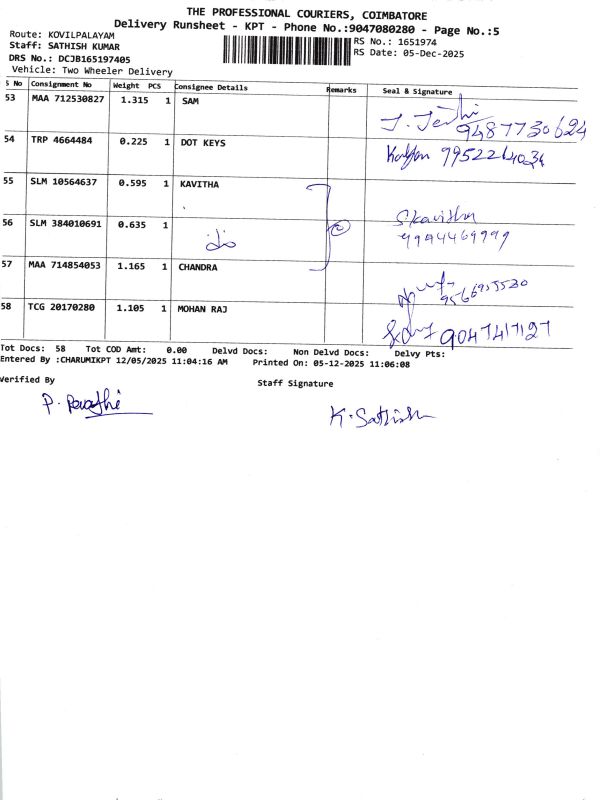 THE PROFESSIONAL COURIERS, COIMBATORE
Delivery Runsheet - KPT - Phone No.:9047080280 - Page No.:5
Route: KOVILPALAYAM
Staff: SATHISH KUMAR
DRS No.: DCJB165197405
Vehicle: Two Wheeler Delivery
RS No.: 1651974
RS Date: 05-Dec-2025
S No Consignment No Weight PCS Consignee Details Remarks Seal & Signature
53 MAA 712530827 1.315 1 SAM
9487730624
54 TRP 4664484 0.225 1 DOT KEYS
55 SLM 10564637 0.595 1 KAVITHA
S.kavitha
9994469999
56 SLM 384010691 0.635 1
2
57 MAA 714854053 1.165 1 CHANDRA
58 TCG 20170280 1.105 1 MOHAN RAJ
Tot Docs: 58 Tot COD Amt: 0.00 Delvd Docs: Non Delvd Docs: Delvy Pts:
Entered By :CHARUMIKPT 12/05/2025 11:04:16 AM Printed On: 05-12-2025 11:06:08
Verified By
Staff Signature
K. Sathish